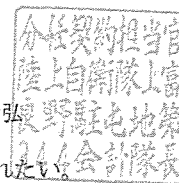 分任契約担当官
陸上自衛隊上富
良野駐屯地第
会計隊長
弘
したい。